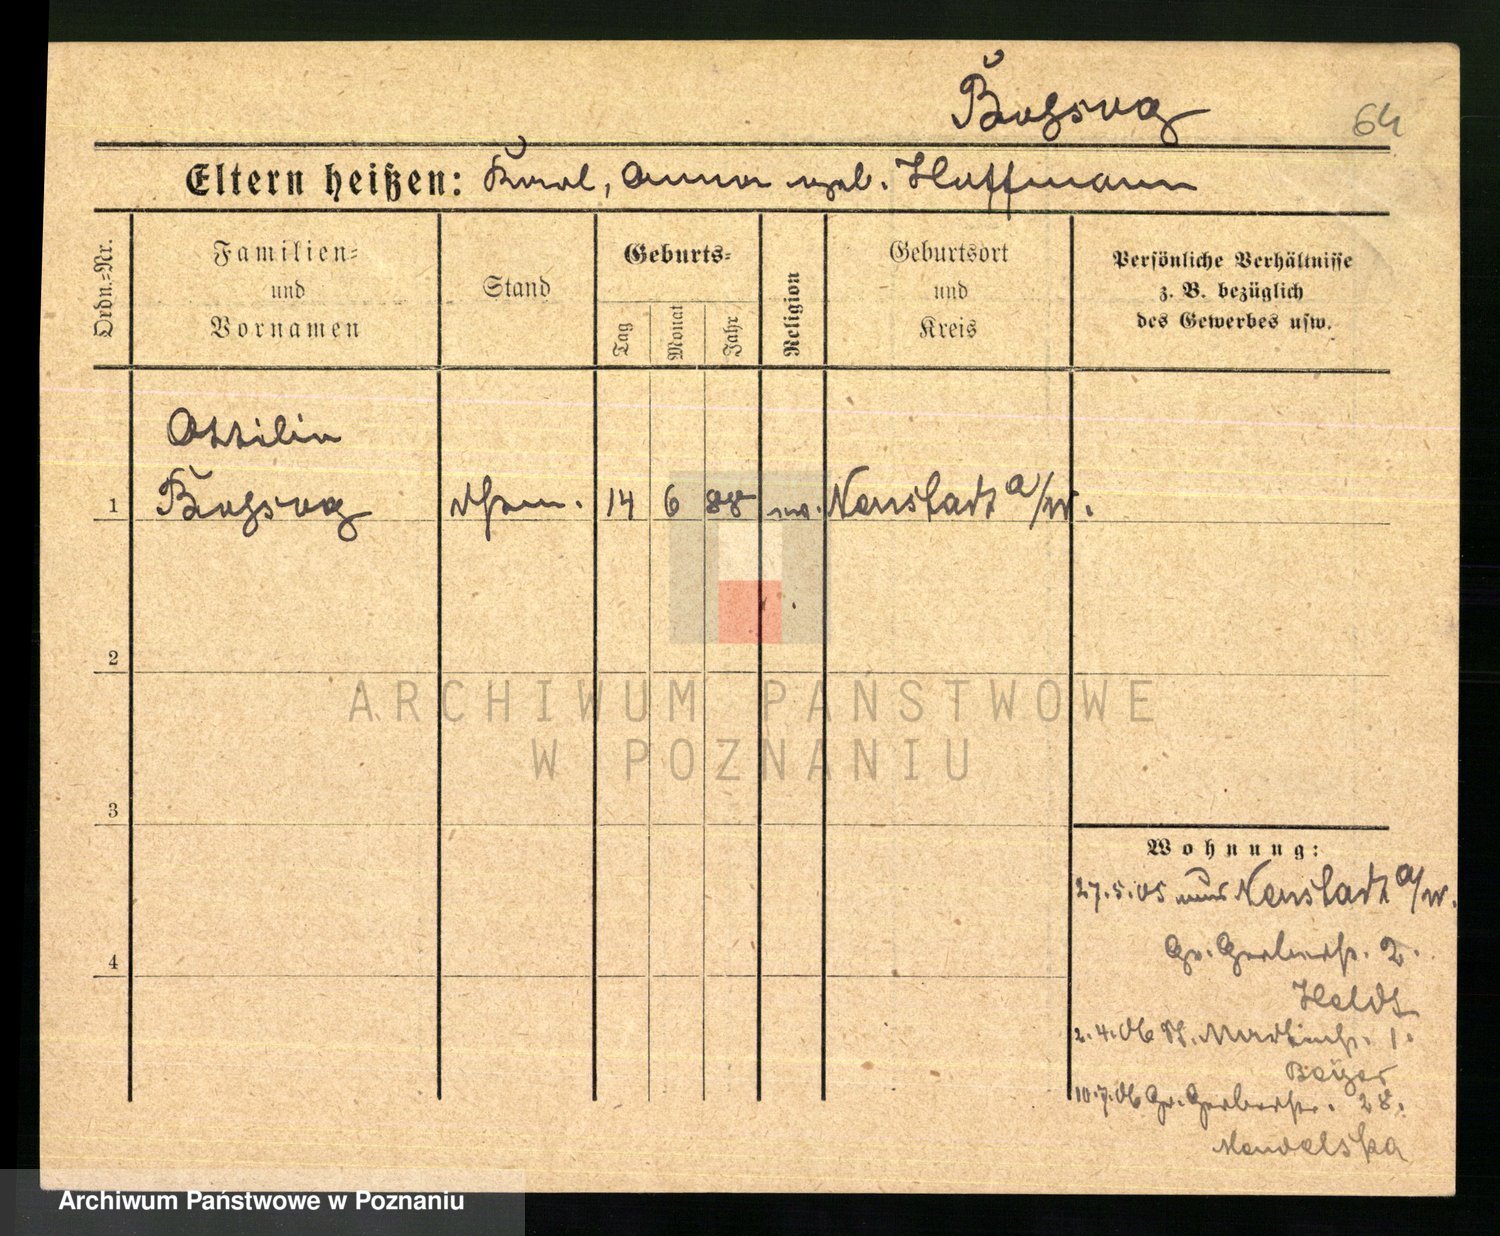 64
Eltern heißen: Karl, Anna geb. Hoffmann
Ordn.=Nr.
Familien=
und
Vornamen
Stand
Geburts=
Tag
Monat
Jahr
Religion
Geburtsort
und
Kreis
Persönliche Verhältnisse
z. B. bezüglich
des Gewerbes usw.
Ottilie
1
14 6 88 Neustadt a/W.
2
3
4
Wohnung:
27.5.05 aus Neustadt a/W.
Gr. Gerberstr. 2.
Heldt
2.4.06 1.
Beyer
10.7.06 Gr. Gerberstr. 28.
Mendelska
ARCHIWUM PAŃSTWOWE
W POZNANIU
Archiwum Państwowe w Poznaniu